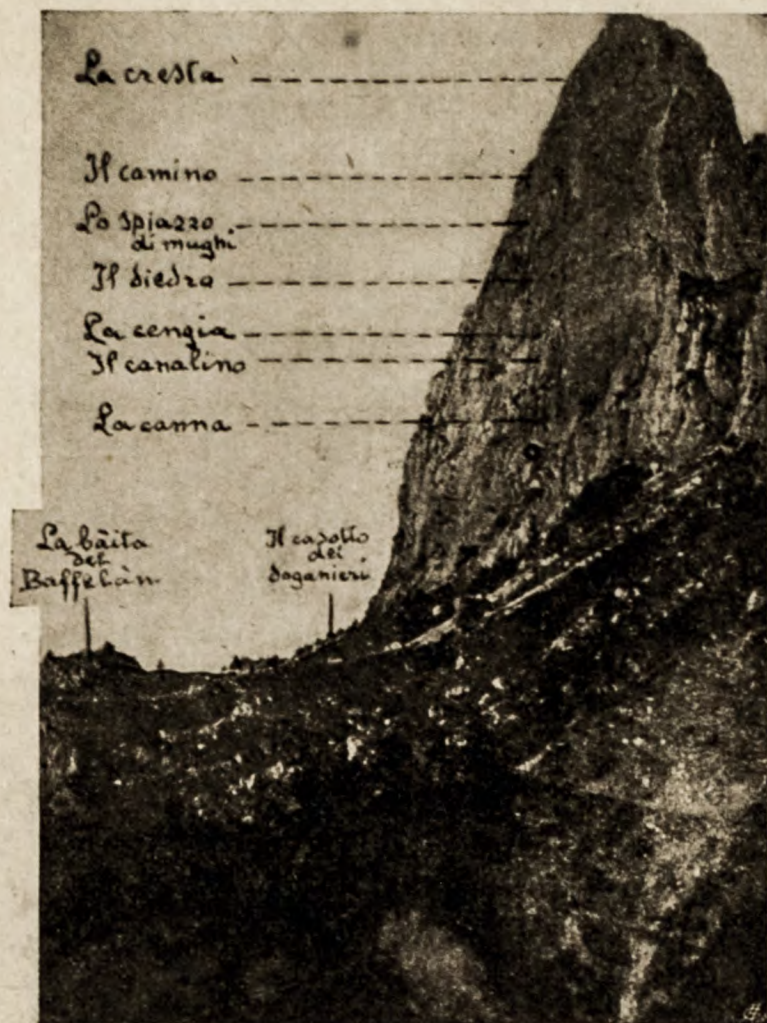 La cresta
Il camino
Lo spiazzo
di mughi
Il diedro
La cengia
Il canalino
La canna
La bàita
del
Baffelàn
Il casotto
dei
doganieri